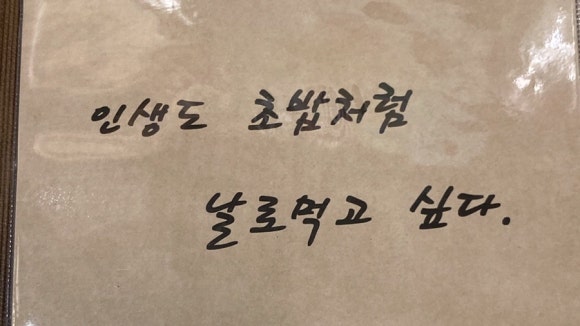 인생도 초밥처럼
날로먹고 싶다.